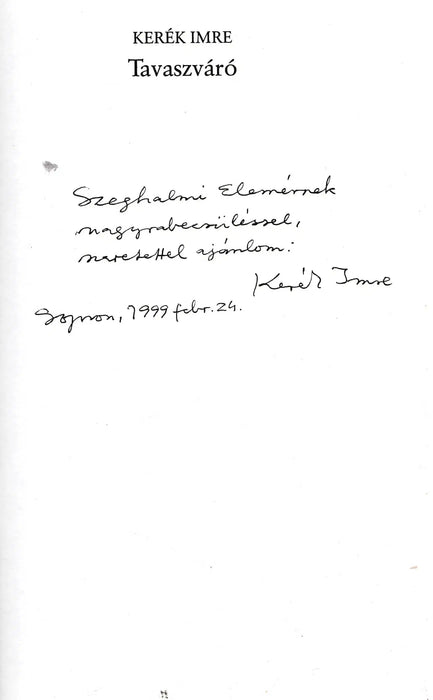 KERÉK IMRE
Tavaszváró
Szeghalmi Elemérnek
nagyrabecsüléssel,
szeretettel ajánlom:
Kerék Imre
Sopron, 1999 febr. 24.